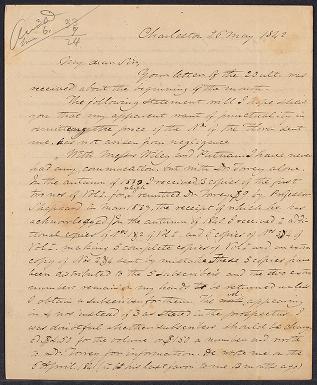 Charleston 26 May 1842
My dear Sir,
Your letter of the 23 ult. was
received about the beginning of the month.
The following statement will I hope shew
you that my apparent want of punctuality in
remitting the price of the Nos. of the Flora sent
me, has not arisen from negligence.
With Messrs Wiley and Putnam I have never
had any communication but with Dr. Torrey alone.
In the autumn of I received 3 copies of the first
two nos of Vol 1. for I remitted Dr Torrey by Professor
Shepard in the receipt of which he has
acknowledged. In the autumn of I received 2 addi-
tional copies of Nos. 1 & 2 of Vol 1. and copies of Nos.
of Vol 1. making 5 complete copies of Vol 1 and an extra
copy of Nos. sent by mistake. These 5 copies have
been distributed to the 5 subscribers and the two extra
numbers remain in my hands to be returned unless
I obtain a subscriber for them. The appearing
in 4 nos instead of 3 as stated in the prospectus, I
was doubtful whether subscribers should be charg-
ed for the volume or $1.50 a number and wrote
to Dr. Torrey for information. He wrote me on the
5 April, his last favor to me months ago